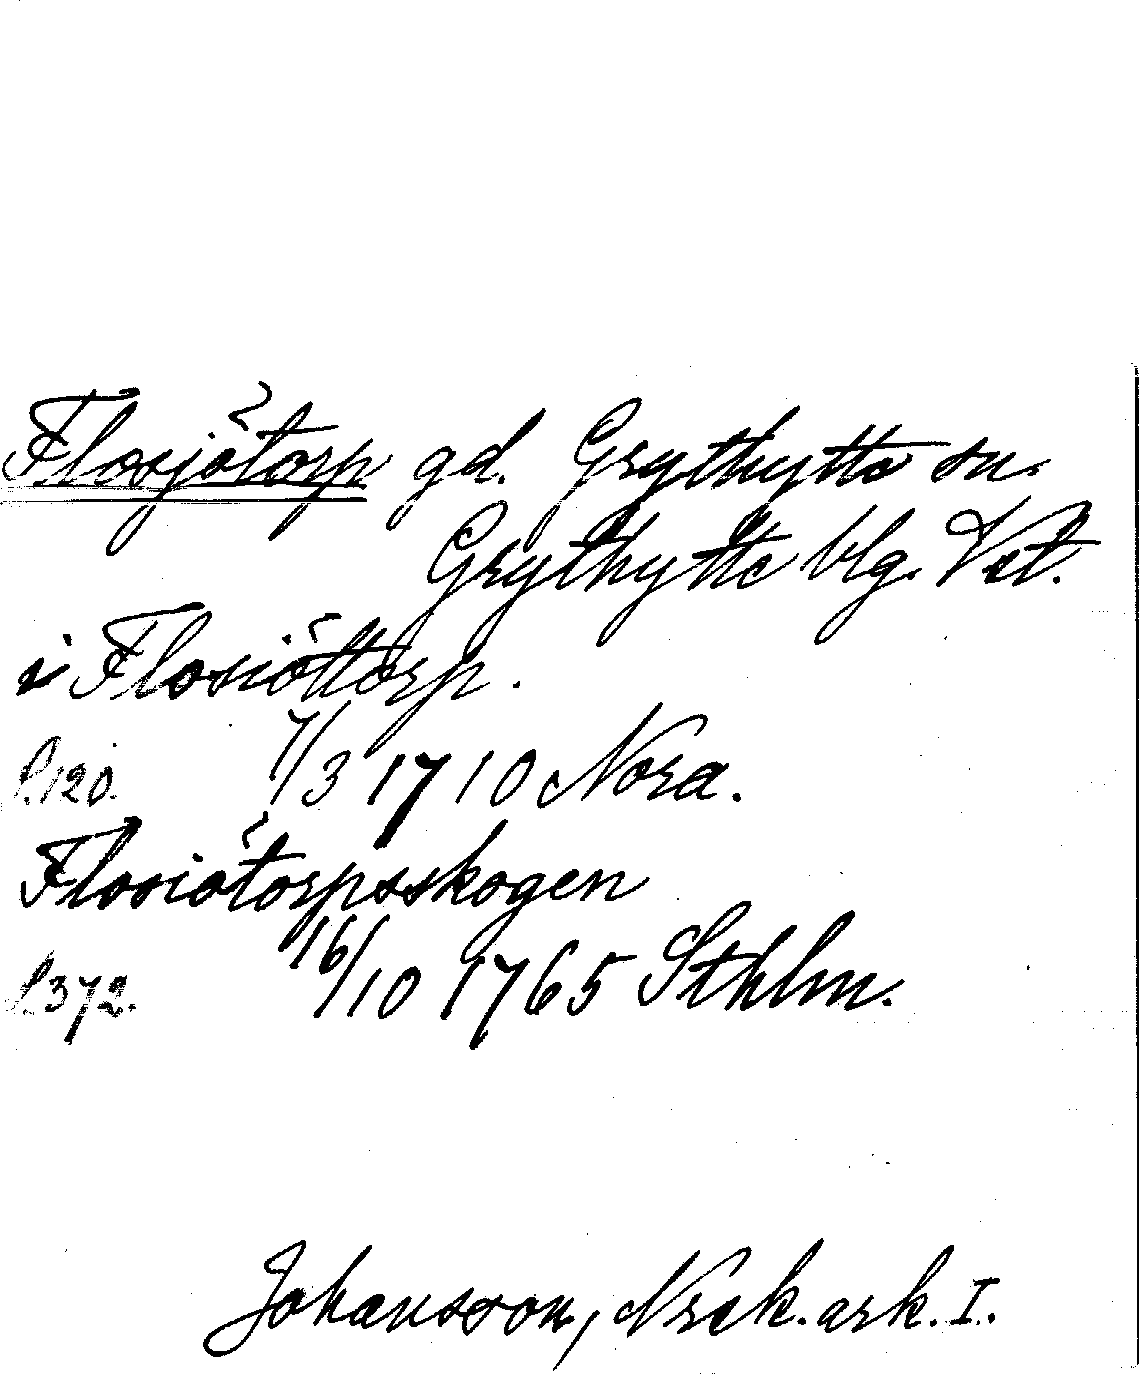 Flosjötorp gd. Grythytte sn.
Grythytte blg. Vst.
i Flosiöttorp.
S. 120. 7/3 1710 Nora.
Flosiötorpsskogen
S. 372. 16/10 1765 Sthlm.
Johansson, Nrck. ark. I.